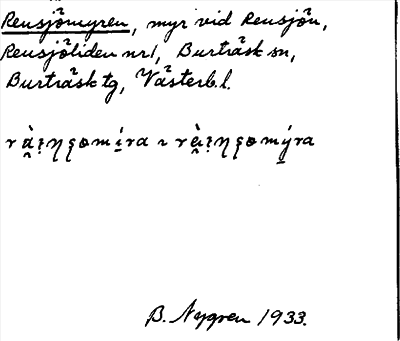 Rensjömyren, myr vid Rensjön,
Rensjöliden nr 1, Burträsk sn,
Burträsk tg, Västerb. l.
B. Nygren 1933.